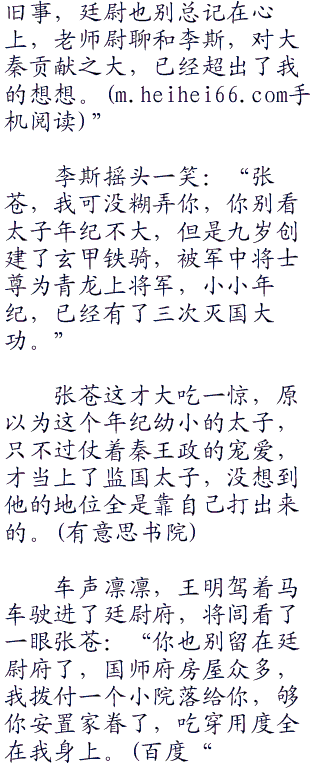 旧事，廷尉也别总记在心
上，老师尉聊和李斯，对大
秦贡献之大，已经超出了我
的想想。(m.heihei66.com手
机阅读)”
李斯摇头一笑：“张
苍，我可没糊弄你，你别看
太子年纪不大，但是九岁创
建了玄甲铁骑，被军中将士
尊为青龙上将军，小小年
纪，已经有了三次灭国大
功。”
张苍这才大吃一惊，原
以为这个年纪幼小的太子，
只不过仗着秦王政的宠爱，
才当上了监国太子，没想到
他的地位全是靠自己打出来
的。(有意思书院)
车声凛凛，王明驾着马
车驶进了廷尉府，将闾看了
一眼张苍：“你也别留在廷
尉府了，国师府房屋众多，
我拨付一个小院落给你，够
你安置家眷了，吃穿用度全
在我身上。(百度“